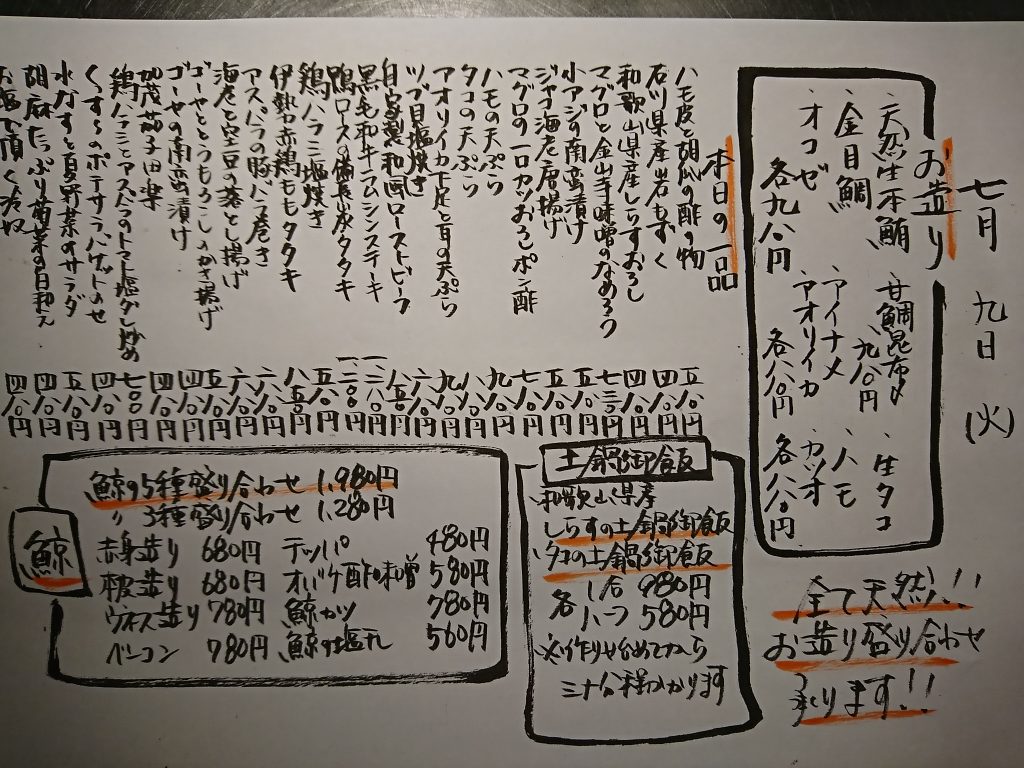 七月 九日 (火)
お造り
、天然生本鮪
、金目鯛
、オコゼ
各九八〇円
、甘鯛昆布〆
九八〇円
、アイナメ
、アオリイカ
各八八〇円
、生タコ
、ハモ
、カツオ
各八八〇円
全て天然!!
お造り盛り合わせ
承ります!!
本日の一品
ハモ皮と胡瓜の酢の物 五八〇円
石川県産岩もずく 四八〇円
和歌山県産しらすおろし 四八〇円
マグロと金山寺味噌のなめろう 七三〇円
小アジの南蛮漬け 五八〇円
ジャコ海老唐揚げ 五八〇円
マグロの一口カツおろしポン酢 七八〇円
ハモの天ぷら 九八〇円
タコの天ぷら 八八〇円
アオリイカ下足と耳の天ぷら 九八〇円
ツブ貝塩焼き 六八〇円
自家製和風ローストビーフ 八五〇円
黒毛和牛ラムシンステーキ 一二八〇円
鴨ロースの備長炭タタキ 一二〇〇円
鶏ハラミ塩焼き 五八〇円
伊勢赤鶏ももタタキ 八五〇円
アスパラの豚バラ巻き 六八〇円
海老と空豆の落とし揚げ 六八〇円
ゴーヤととうもろこしのかき揚げ 五八〇円
ゴーヤの南蛮漬け 四八〇円
加茂茄子田楽 四八〇円
鶏ハラミとアスパラのトマト塩ダレ炒め 七〇〇円
くずきのポテサラバゲットのせ 四八〇円
水ダコと夏野菜のサラダ 五八〇円
胡麻たっぷり菊菜の白和え 四八〇円
お塩で頂く冷奴 四八〇円
土鍋御飯
、和歌山県産
しらすの土鍋御飯
、タコの土鍋御飯
各 1合 980円
ハーフ 580円
※作り始めてから
三十分程かかります
鯨
鯨の5種盛り合わせ 1,980円
〃 3種盛り合わせ 1,280円
赤身造り 680円
本皮造り 680円
ウネス造り 780円
ベーコン 780円
テッパ 480円
オバケ酢味噌 580円
鯨カツ 780円
鯨の塩タレ 560円